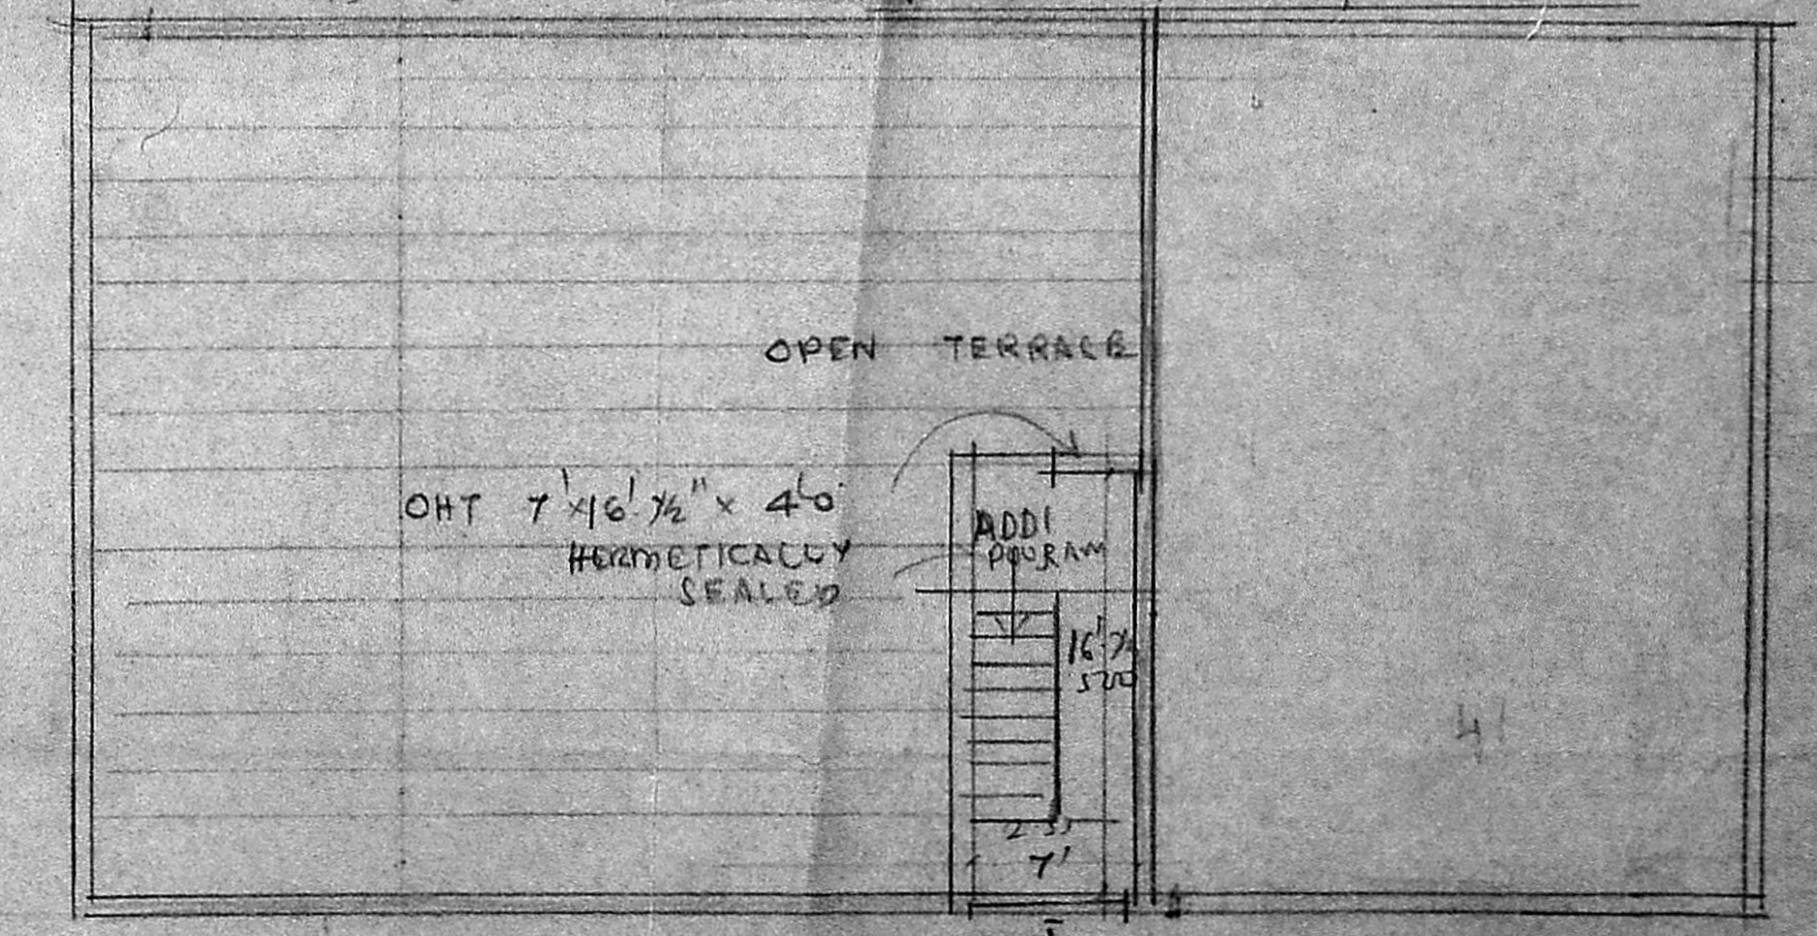 OPEN TERRACE
OHT 7'x16'.7½" x 4'0"
HERMETICALLY
SEALED
ADDI
POURAM
16'.7½
7'
41